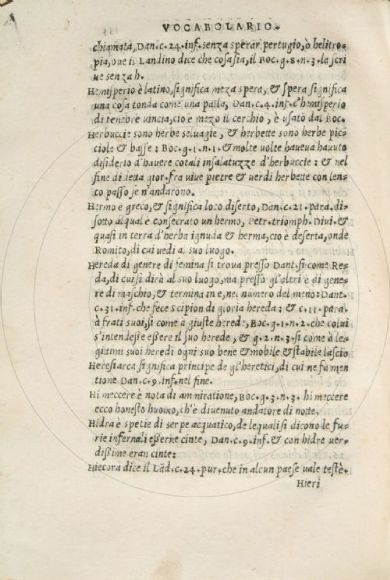 VOCABOLARIO.
chiamata, Dan.c.24.inf.senza sperar pertugio, ò helitro-
pia, oue il Landino dice che cosa sia, il Boc.g.8.n.3.la scri
ue senza h.
Hemisperio è latino, significa meza spera, & spera significa
una cosa tonda come una palla, Dan.c.4.inf.c'hemisperio
di tenebre uincia, cio è mezo il cerchio, è usato dal Boc.
Herbuccie sono herbe seluagie, & herbette sono herbe pic
ciole & basse: Boc.g.1.n.1.& molte uolte haueua hauuto
disiderio d'hauere cotali insalatuzze d'herbuccie: & nel
fine di detta gior.fra uiue pietre et uerdi herbette con len-
to passo se n'andarono.
Hermo è greco, & significa loco diserto, Dan.c.21.para.di-
sotto al qual è consecrato un hermo, Petr.triomph.Diui.&
quasi in terra d'herba ignuda & herma, cio è deserta, onde
Romito, di cui uedi a suo luogo.
Hereda di genere di femina si troua presso Dant.si come Re-
da, di cui si dirà al suo luogo, ma presso gl'altri è di gene-
re di maschio, & termina in e, nel numero del meno: Dant.
c.31.inf.che fece scipion di gloria hereda: & c.11.para.
à frati suoi, si come à giuste herede, Boc.g.1.n.2.che colui
s'intendesse essere il suo herede, & g.2.n.3.si come à le-
gittimi suoi heredi ogni suo bene & mobile & stabile lascio
Heresiarca significa principe de gl'heretici, di cui ne fa men
tione Dan.c.9.inf.nel fine.
Hi meccere è nota di ammiratione, Boc.g.3.n.3.hi meccere
ecco honesto huomo, ch'è diuenuto andatore di notte.
Hidra è spetie di serpe acquatico, de le quali si dicono le fu-
rie infernali esserne cinte, Dan.c.9.inf.& con hidre uer-
dissime eran cinte:
Hiecora dice il Lãd.c.24.pur.che in alcun paese uale testè.
Hieri